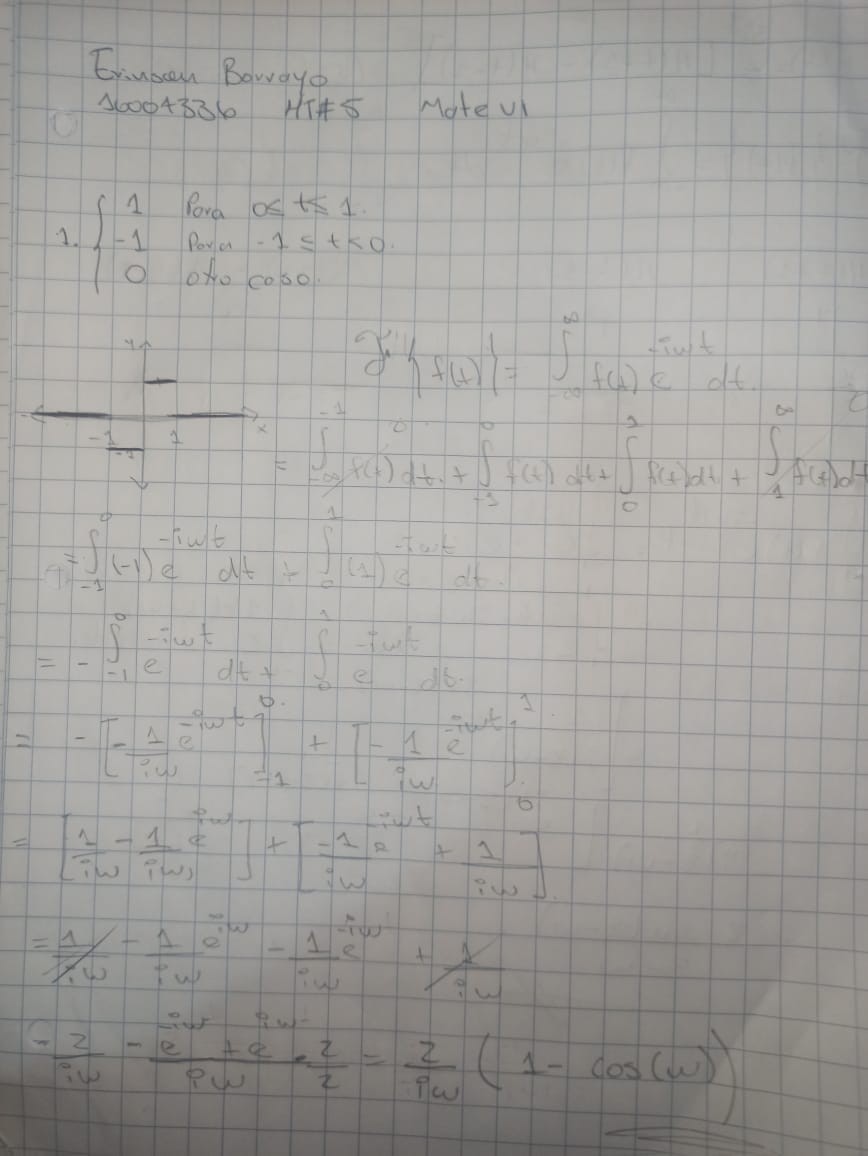 Borrayo
16004336 HT#5 Mate VI
1. { 1 Para 0≤ t≤ 1.
-1 Para -1 ≤ t<0.
0 otro caso.
y
-1 1 x
-1
F{f(t)} = ∫_{-∞}^{∞} f(t) e^{-iwt} dt.
= ∫_{-∞}^{-1} f(t) dt. + ∫_{-1}^{0} f(t) dt + ∫_{0}^{1} f(t)dt + ∫_{1}^{∞} f(t)dt
= ∫_{-1}^{0} (-1) e^{-iwt} dt + ∫_{0}^{1} (1) e^{-iwt} dt.
= - ∫_{-1}^{0} e^{-iwt} dt + ∫_{0}^{1} e^{-iwt} dt.
= - [-1/iw e^{-iwt}]_{-1}^{0} + [-1/iw e^{-iwt}]_{0}^{1}
= [1/iw - 1/iw e^{iw}] + [-1/iw e^{-iwt} + 1/iw].
= 1/iw - 1/iw e^{iw} - 1/iw e^{-iw} + 1/iw
= 2/iw - (e^{iw} + e^{-iw})/iw · 2/2 = 2/iw (1 - cos(w))